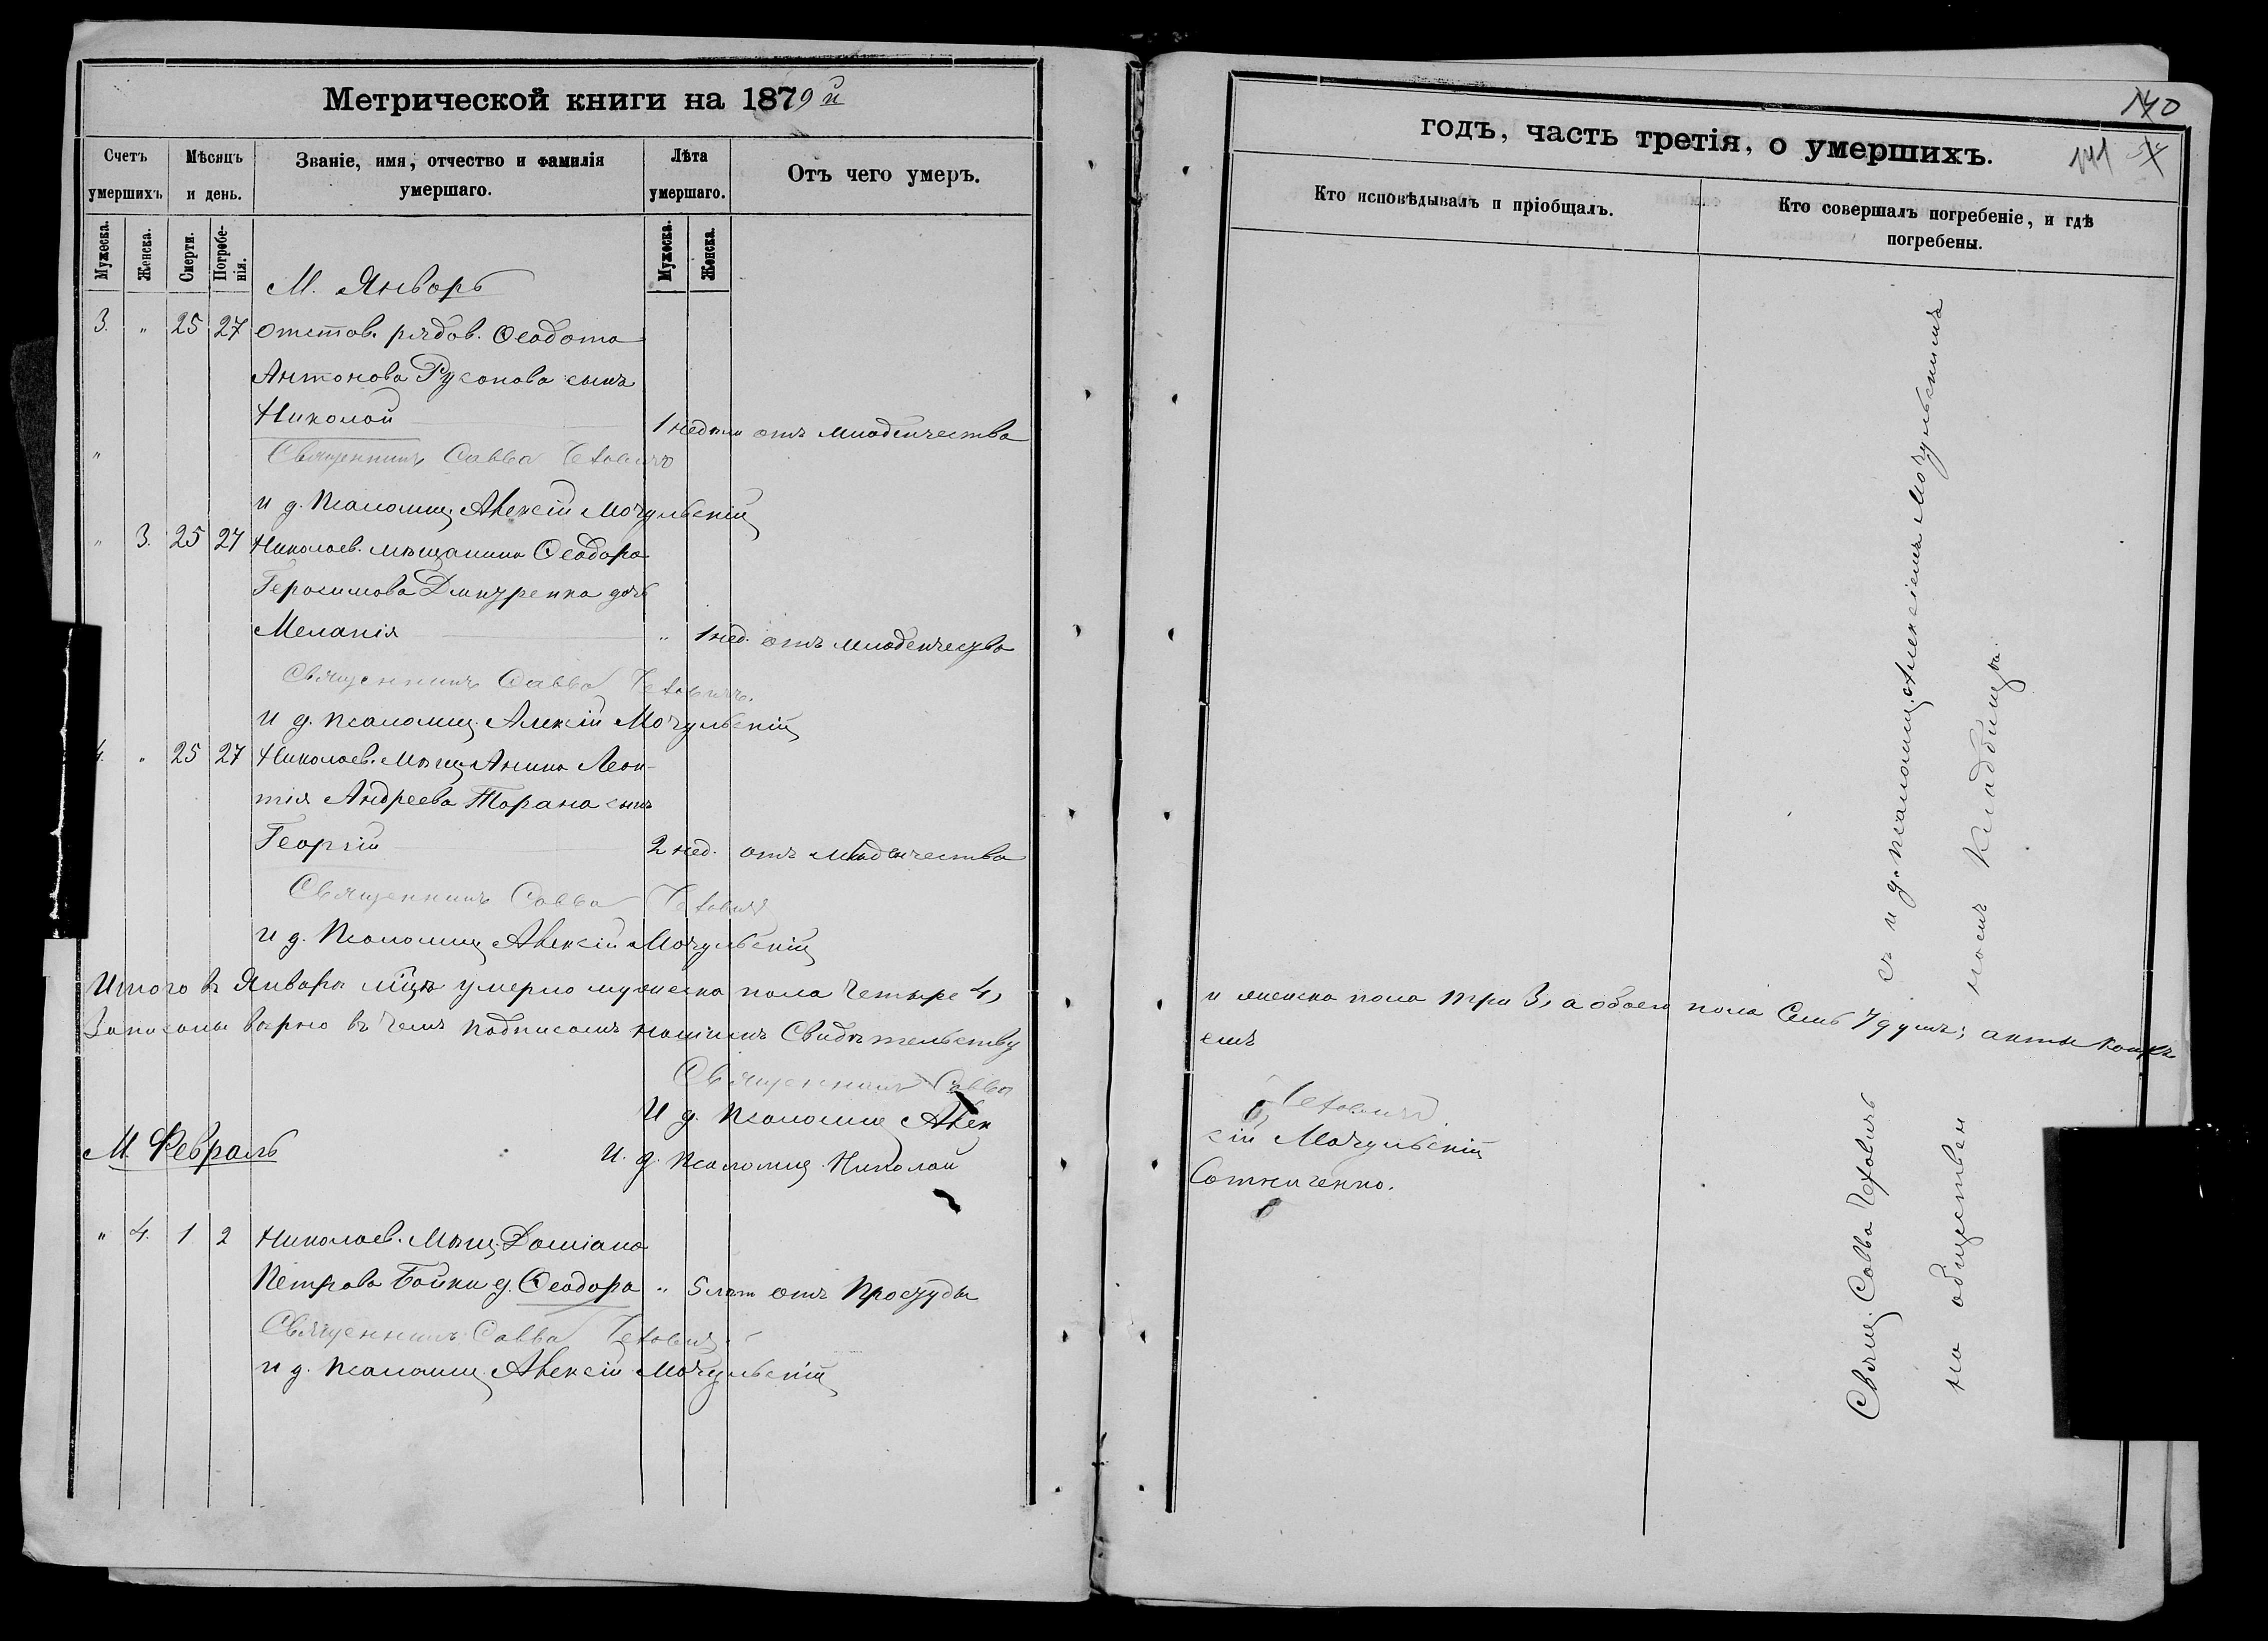 Метрической книги на 1879й
Счетъ умершихъ
Мѣсяцъ и день.
Званіе, имя, отчество и фамилія умершаго.
Лѣта умершаго.
Отъ чего умеръ.
Мужеска.
Женска.
Смерти.
Погребе-
нія.
Мужеска.
Женска.
М. Январь
3. " 25 27 Отстав. рядов. Ѳеодота
Антонова Русонова сынъ
Николай 1 недели отъ младенчества
" Священникъ Савва Чеховичъ
И д. Псаломщ. Алексій Мочульскій
" 3. 25 27 Николаев. мѣщанина Ѳеодора
Герасимова Дмитренка дочь
Меланія " 1 нед. отъ младенчества
Священникъ Савва Чеховичъ.
И д. псаломщ. Алексій Мочульскій
4. " 25 27 Николаев. Мѣщанина Леон-
тія Андреева Тарана сынъ
Георгій 2 нед. отъ младенчества
Священникъ Савва Чеховичъ
И д. Псаломщ. Алексій Мочульскій
Итого въ Январѣ мцѣ умерло мужеска пола Четыре 4,
Записаны вѣрно въ чемъ подписомъ нашимъ Свидѣтельству
Священникъ Савва
И д. Псаломщ Алек
М. Февраль
И. д. Псаломщ. Николай
" 4. 1 2 Николаев. Мѣщ. Даміана
Петрова Бойки д. Ѳеодора " 5 лѣт отъ Простуды
Священникъ Савва Чеховичъ
И д. Псаломщ. Алексій Мочульскій
140
годъ, часть третія, о умершихъ.
141
Кто исповѣдывалъ и пріобщалъ.
Кто совершалъ погребеніе, и гдѣ
погребены.
и женска пола три 3, а обоего пола Семь 7 душъ; акты
емъ
Чеховичъ
сій Мочульскій
Сотниченко.
Свящ. Савва Чеховичъ съ и д. псаломщ. Алексіемъ Мочульскимъ
на общественномъ Кладбищѣ.